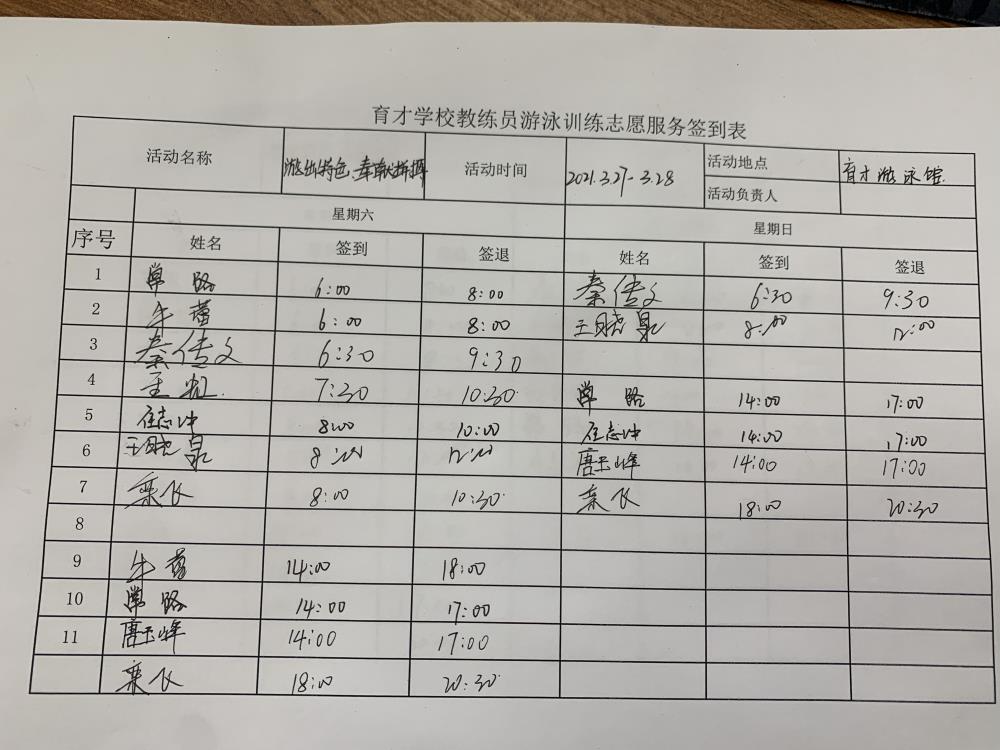 育才学校教练员游泳训练志愿服务签到表
活动名称 游出特色、奉献拼搏 活动时间 2021.3.27-3.28 活动地点 育才游泳馆
活动负责人
星期六 星期日
序号 姓名 签到 签退 姓名 签到 签退
1 路 6:00 8:00 秦传文 6:30 9:30
2 牛 6:00 8:00 王晓泉 8:00 12:00
3 秦传文 6:30 9:30
4 王 7:30 10:30 路 14:00 17:00
5 任志冲 8:00 10:00 任志冲 14:00 17:00
6 王晓泉 8:00 12:00 唐玉峰 14:00 17:00
7 栾飞 8:00 10:30 栾飞 18:00 20:30
8
9 牛 14:00 18:00
10 路 14:00 17:00
11 唐玉峰 14:00 17:00
栾飞 18:00 20:30